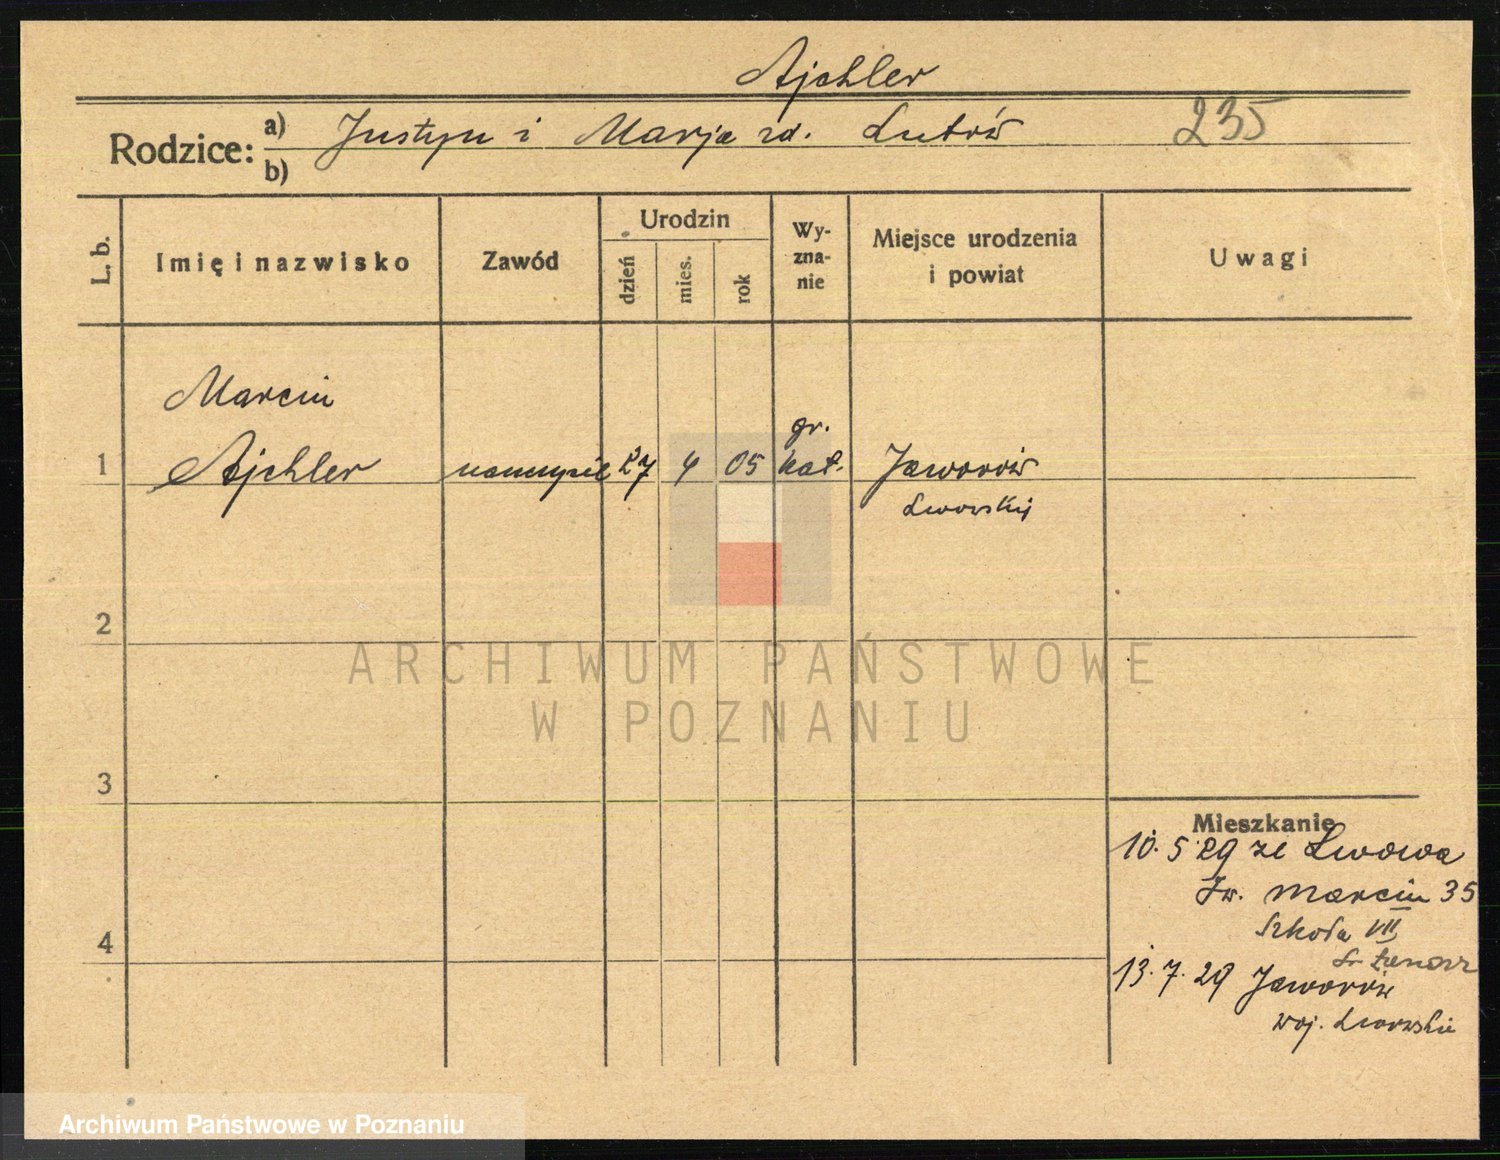 Ajchler
Rodzice: a) Justyn i Marja zd. Lutów 235
b)
L. b. Imię i nazwisko Zawód Urodzin dzień mies. rok Wy-zna-nie Miejsce urodzenia i powiat Uwagi
Marcin
gr.
1 Ajchler nauczyciel 27 4 05 kat. Jaworów
Lwowskij
2
ARCHIWUM PAŃSTWOWE
W POZNANIU
3
Mieszkanie
10. 5 29 ze Lwowa
Św. Marcin 35
Szkoła VII
4
13. 7. 29 Jaworów
woj. Lwowskie
Archiwum Państwowe w Poznaniu